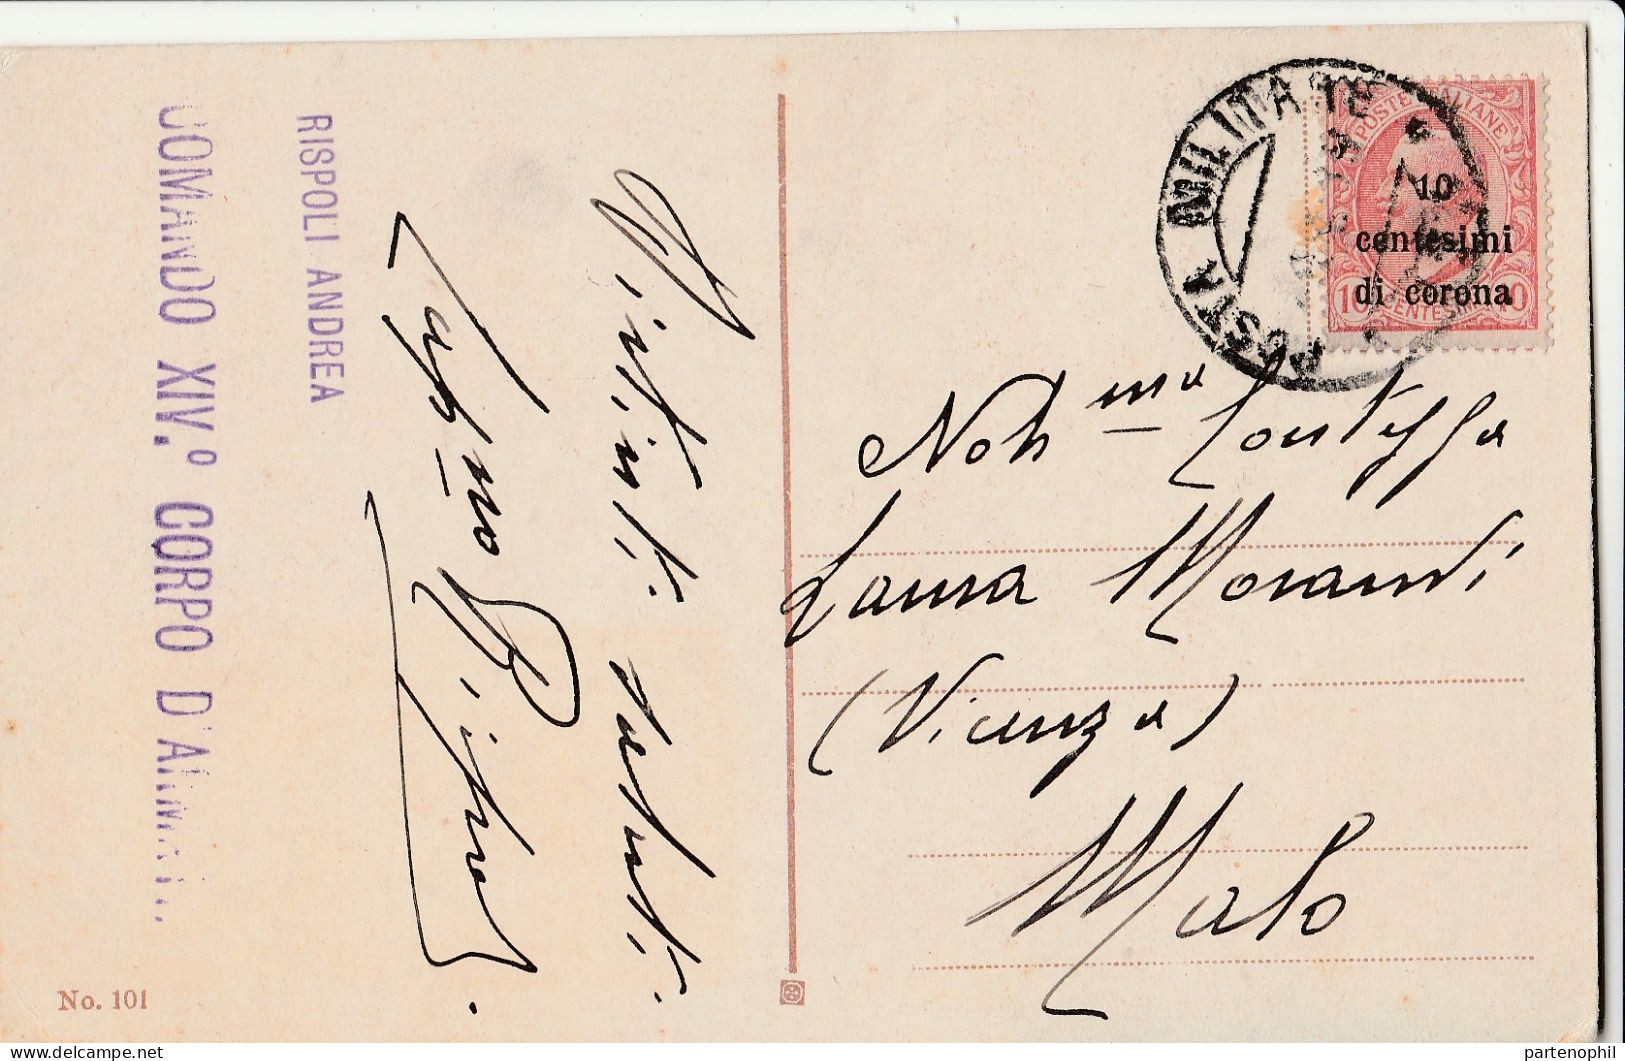 COMANDO XIV.º CORPO D'ARMATA
RISPOLI ANDREA
Distinti saluti
No. 101
POSTA MILITARE
POSTE ITALIANE
10
centesimi
di corona
10 CENTESIMI 10
Nob ma Contessa
Laura Morandi
(Vicenza)
Malo
partenophil